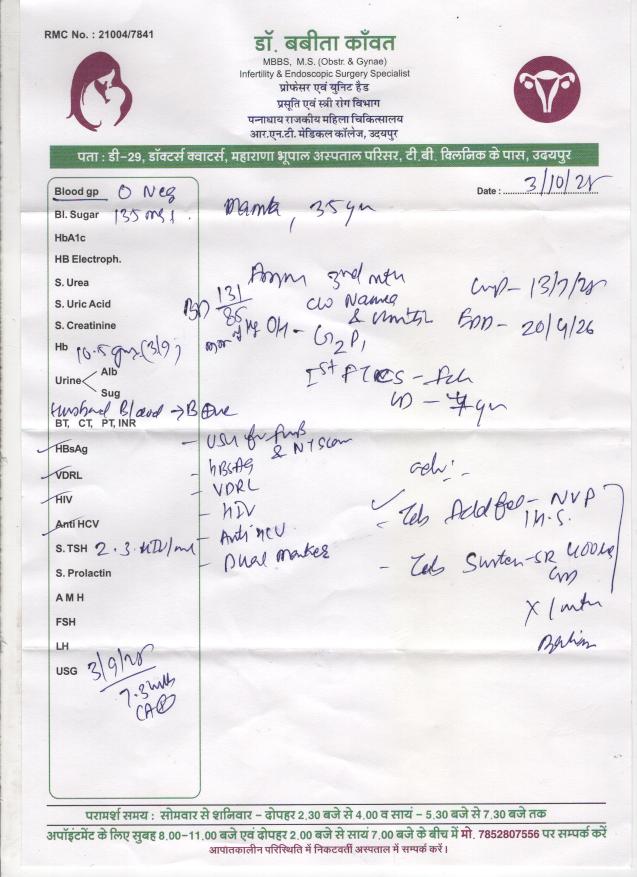 RMC No. : 21004/7841
डॉ. बबीता काँवत
MBBS, M.S. (Obstr. & Gynae)
Infertility & Endoscopic Surgery Specialist
प्रोफेसर एवं युनिट हैड
प्रसूति एवं स्त्री रोग विभाग
पन्नाधाय राजकीय महिला चिकित्सालय
आर.एन.टी. मेडिकल कॉलेज, उदयपुर
पता : डी-29, डॉक्टर्स क्वाटर्स, महाराणा भूपाल अस्पताल परिसर, टी.बी. क्लिनिक के पास, उदयपुर
Date : 3/10/25
Blood gp O Neg
Bl. Sugar 135 mg
Mamta, 35 yr
HbA1c
HB Electroph.
S. Urea
3rd mth
LMP - 13/7/25
S. Uric Acid
BP 131/85
C/O Nausea
& Vomit
EDD - 20/4/26
S. Creatinine
OH - G2P1
Hb 10.5 gm (3/9)
Urine Alb
Sug
Ist
LD - 4 yr
Husband Blood → B +ve
BT, CT, PT, INR
HBsAg
VDRL
HIV
Anti HCV
S. TSH 2.3
S. Prolactin
A M H
FSH
LH
USG 3/9/25
7.3 wks
CA
- USG for
& NT Scan
- HBsAg
- VDRL
- HIV
- Anti HCV
- Dual Marker
adv :-
- Tab - NVP
1 H.S.
- Tab Susten-SR 400
X 1 mth
परामर्श समय : सोमवार से शनिवार - दोपहर 2.30 बजे से 4.00 व सायं - 5.30 बजे से 7.30 बजे तक
अपॉइंटमेंट के लिए सुबह 8.00-11.00 बजे एवं दोपहर 2.00 बजे से सायं 7.00 बजे के बीच में मो. 7852807556 पर सम्पर्क करें
आपातकालीन परिस्थिति में निकटवर्ती अस्पताल में सम्पर्क करें।